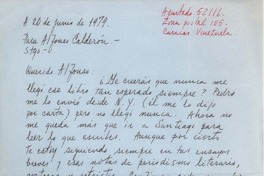 A 20 de junio de 1979.
Apartado 52116.
Zona postal 105.
Caracas. Venezuela
Para Alfonso Calderón.
Stgo.-
Querido Alfonso:
¿Me creerás que nunca me
llegó ese libro tan esperado siempre? Pedro
me lo envió desde N.Y. (él me lo dijo
por carta) pero no llegó nunca. Ahora no
me queda más que ir a Santiago para
leer lo que escribes. Aunque por cierto
te estoy siguiendo siempre en tus ensayos
breves y las notas de periodismo literario,